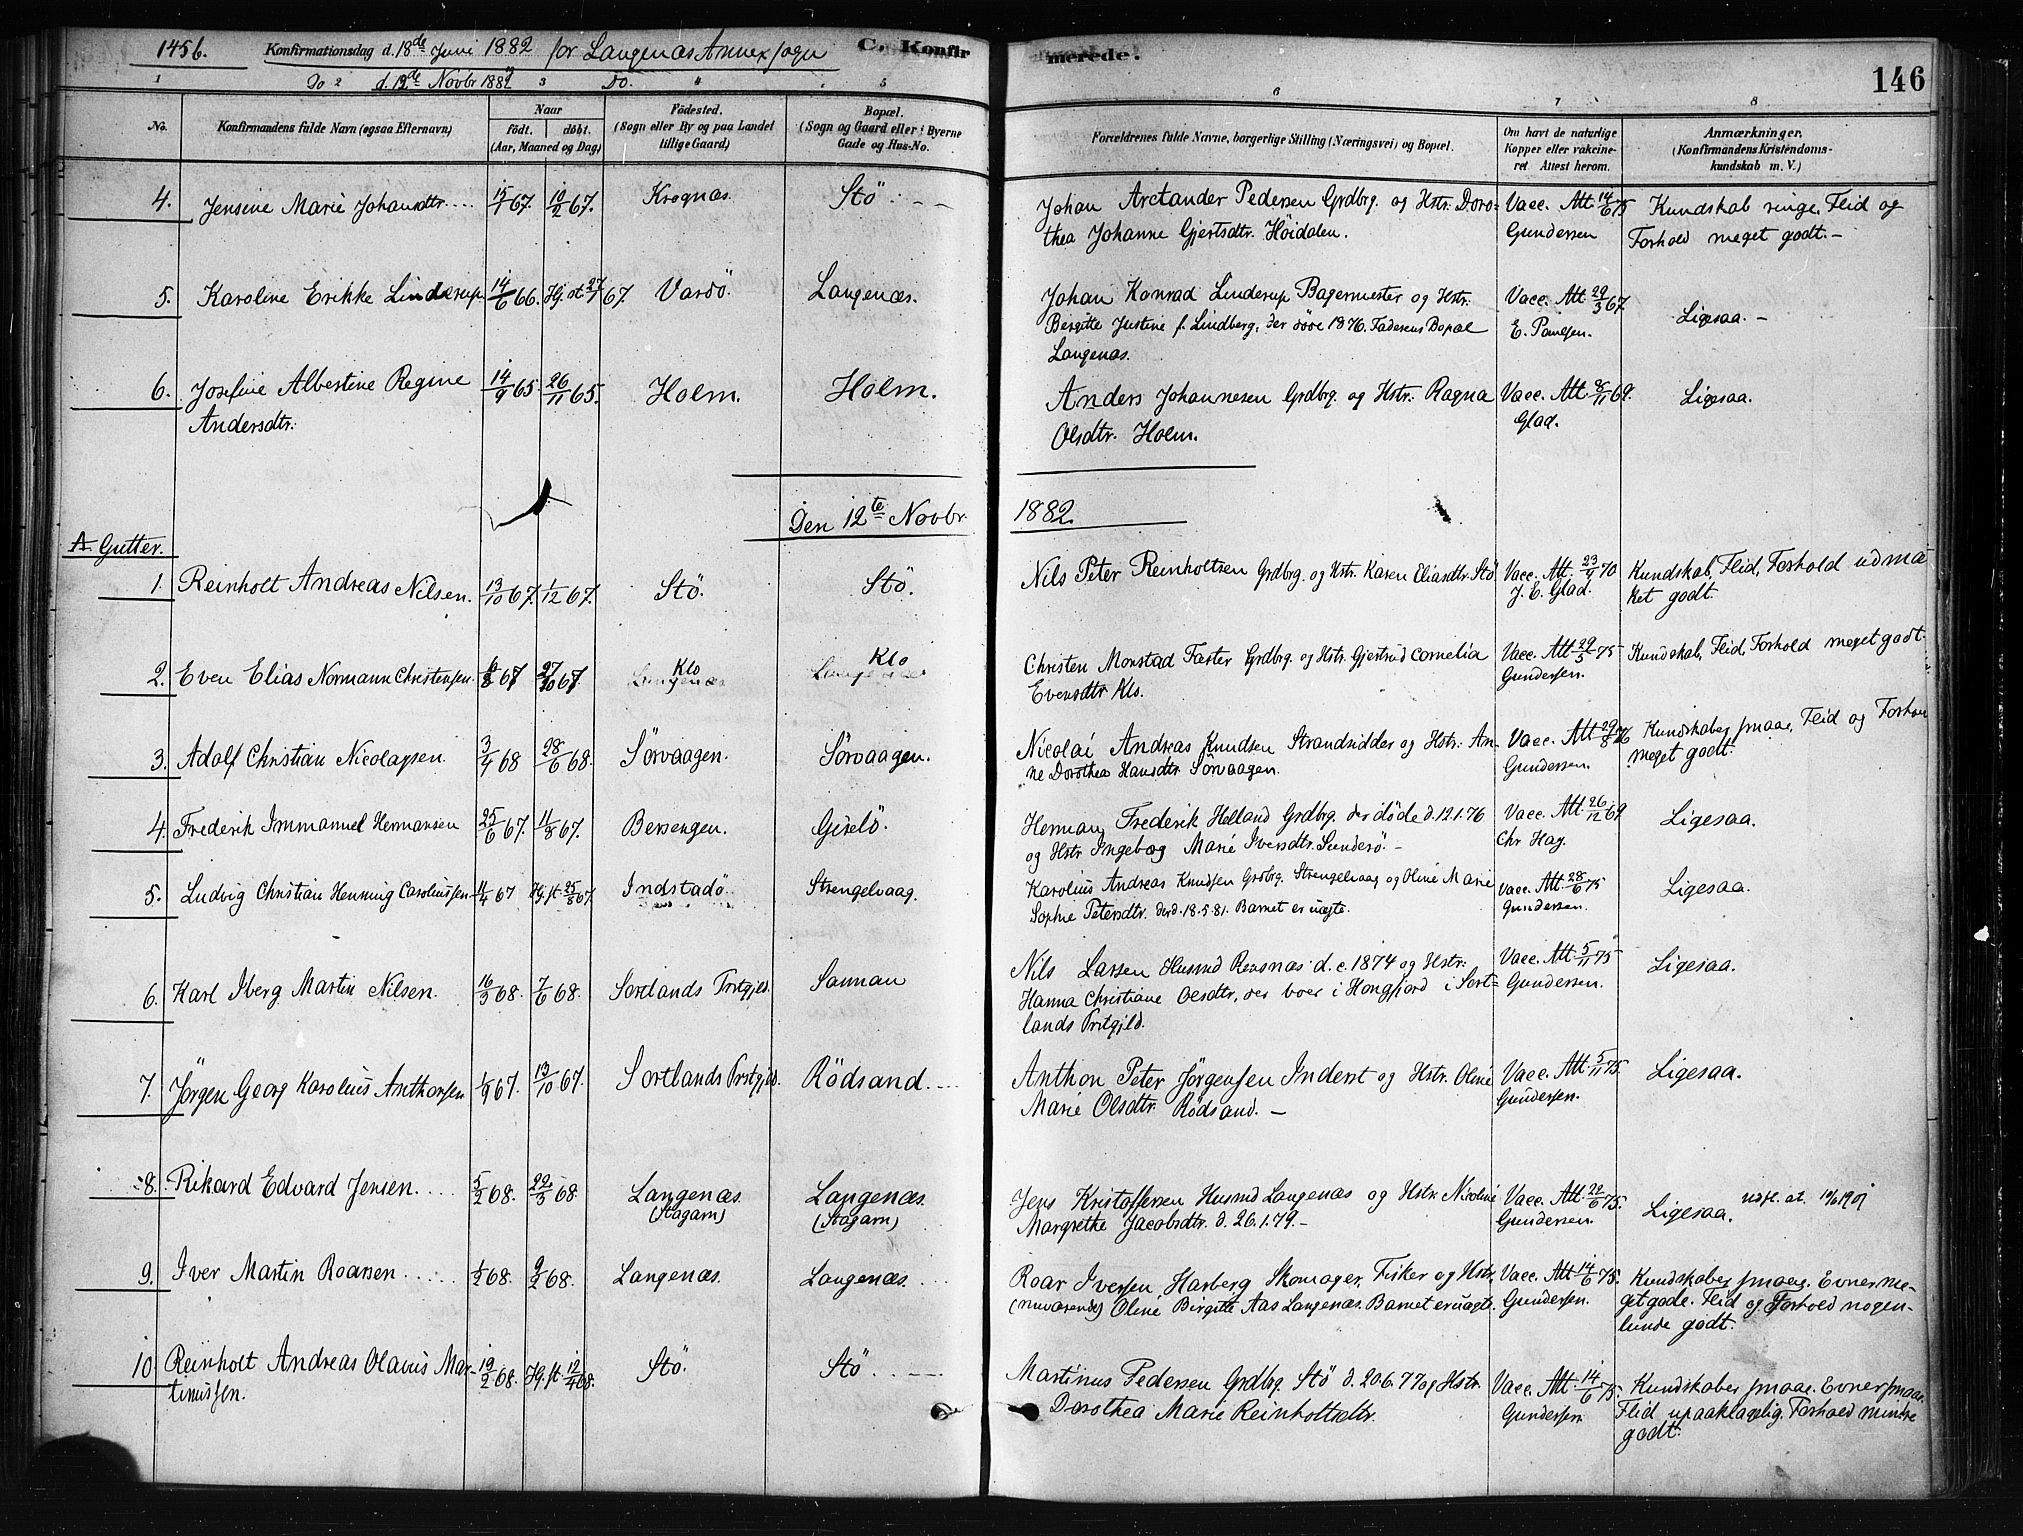 145b.
Konfirmationsdag d. 18de Juni 1882 for Langenæs Annexsogn
C. Konfirmerede.
146
Do d. 12te Novbr 1882 Do.
1 2 3 4 5 6 7 8
No.
Konfirmandens fulde Navn (ogsaa Efternavn)
Naar
født. døbt.
(Aar, Maaned og Dag)
Fødested.
(Sogn eller By og paa Landet
tillige Gaard)
Bopæl.
(Sogn og Gaard eller i Byerne
Gade og Hus-No.
Forældrenes fulde Navne, borgerlige Stilling (Næringsvei) og Bopæl.
Om havt de naturlige
Kopper eller vakcine-
ret Attest herom.
Anmærkninger.
(Konfirmandens Kristendoms-
kundskab m. V.)
4. Jensine Marie Johansdtr. 15/1 67. 10/2 67. Krognæs. Stö.
Johan Arctander Pedersen Grdbrg. og Hstr: Doro-
thea Johanne Gjertsdtr. Höidalen.
Vacc. Att. 14/6 75
Gundersen
Kundskab ringe, Flid og
Forhold meget godt. -
5. Karoline Erikke Linderup 14/6 66. Hj. st. 27/1 67. Vardö. Langenæs.
Johan Konrad Linderup Bagermester og Hstr:
Bergitte Justine f. Lindberg, der döde 1876. Faderens Bopæl
Langenæs.
Vacc. Att. 29/3 67
E. Paulsen.
Ligesaa. -
6. Josefine Albertine Regine
Andersdtr:
14/9 65. 26/11 65. Holm. Holm.
Anders Johannesen Grdbrg. og Hstr: Ragna
Olsdtr. Holm.
Vacc. Att. 8/11 69.
Glad.
Ligesaa.
Den 12te Novbr 1882.
A Gutter.
1. Reinholt Andreas Nilsen. 13/10 67. 1/12 67. Stö. Stö.
Nils Peter Reinholtsen Grdbrg. og Hstr. Karen Eliasdtr. Stö
Vacc. Att. 23/4 70
J. E. Glad.
Kundskab, Flid, Forhold udmær-
ket godt.
2. Even Elias Normann Christensen 8/8 67 27/10 67. Klo Klo
Langenæs Langenæs
Christen Monstad Fæster Grdbrg. og Hstr. Gjertrud Cornelia
Evensdtr Klo.
Vacc. Att. 29/5 75
Gundersen.
Kundskab, Flid, Forhold meget godt.
3. Adolf Christian Nicolaysen. 3/4 68 28/6 68. Sörvaagen. Sörvaagen.
Nicolai Andreas Knudsen Strandsidder og Hstr: An-
ne Dorothea Hansdtr Sörvaagen.
Vacc. Att 29/8 76
Gundersen.
Kundskaber smaae, Flid og Forhold
meget godt.
4. Frederik Immanuel Hermansen 25/6 67. 11/8 67. Bersengen. Giselö.
Herman Frederik Helland Grdbrg. der döde d. 12.1.76
og Hstr Ingeborg Marie Iversdtr. Sunderö. -
Vacc. Att. 26/12 69
Chr Hag.
Ligesaa.
5. Ludvig Christian Henning Caroliussen 11/4 67 Hj. st 25/8 67. Indstadö. Strengelvaag.
Karolius Andreas Knudsen Grdbrg. Strengelvaag og Oline Marie
Sophie Petersdtr. der d. 18.5.81. Barnet er uægte.
Vacc. Att. 28/6 75
Gundersen.
Ligesaa.
6. Karl Iberg Martin Nilsen. 16/3 68. 7/6 68. Sortlands Prstgjld. Sannan
Nils Larsen Husmd Rensnæs d. c. 1874 og Hstr:
Hanna Christiane Olsdtr, der boer i Hongfjord i Sort-
lands Prstgjld.
Vacc. Att. 5/11 75
Gundersen.
Ligesaa.
7. Jörgen Georg Karolius Anthonsen 1/9 67. 13/10 67. Sortlands Prstgjld. Rödsand.
Anthon Peter Jörgensen Inderst og Hstr. Oline
Marie Olsdtr. Rödsand. -
Vacc. Att. 5/11 75.
Gundersen.
Ligesaa.
8. Rikard Edvard Jensen. 5/2 68. 22/3 68. Langenæs. Langenæs.
(Stagarn) (Stagarn)
Jens Kristoffersen Husmd Langenæs og Hstr. Nicoline
Margrethe Jacobsdtr. d. 26.1.79. -
Vacc. Att. 22/6 75.
Gundersen.
Ligesaa. udst. at.
9. Iver Martin Roarsen. 1/2 68. 9/2 68. Langenæs. Langenæs.
Roar Iversen Harberg Skomager, Fisker og Hstr.
(nuværende) Oline Birgitte Aas Langenæs. Barnet er uægte.
Vacc. Att 14/6 75.
Gundersen.
Kundskaber smaae. Evner me-
get gode. Flid og Forhold nogen-
lunde godt.
10. Reinholt Andreas Olavus Mar-
tinussen.
19/2 68. Hj. st 12/4 68. Stö. Stö
Martinus Pedersen Grdbrg. Stö d. 20.6.77 og Hstr.
Dorothea Marie Reinholtsdtr.
Vacc. Att 14/6 75.
Gundersen
Kundskaber smaae. Evner smaae.
Flid upaaklagelig, Forhold mindre
godt.